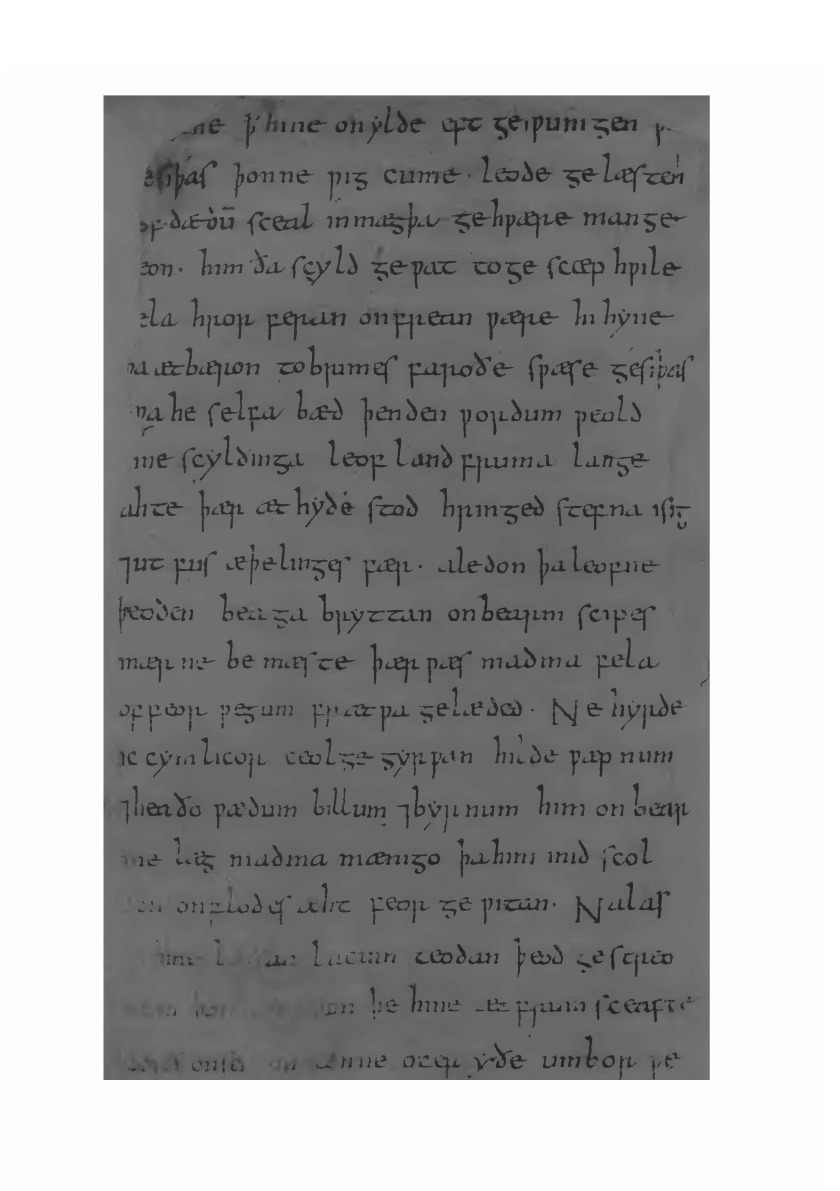 ne ꝥ hine onylde eft geƿunigen ƿ
esiþas þonne ƿig cume · leode gelæsten
of dædū sceal inmægþa gehƿære man ge
eon · him ða scyld geƿat toge scæp hƿile
ela hror feran onfrean ƿære hi hyne
þa ætbæron tobrimes faroðe sƿæse gesiþas
ƿa he selfa bæd þenden ƿordum ƿeold
ine scyldinga leof land fruma lange
ahte þær æt hyðe stod hringed stefna isig
⁊ut fus æþelinges fær · aledon þa leofne
þeoden beaga bryttan onbearm scipes
mærne be mæste þær ƿæs madma fela
of feor ƿegum frætƿa gelæded · Ne hyrde
ic cymlicor ceol ge gyrƿan hilde ƿæpnum
⁊heaðo ƿædum billum ⁊byrnum him on bear
me læg madma mænigo þa him mid scol
don onflodes æht feor ge ƿitan · Nalæs
hine lacum teodan þeod ge streo
þe hine æt frum sceafte
ænne ofer yðe umbor ƿe